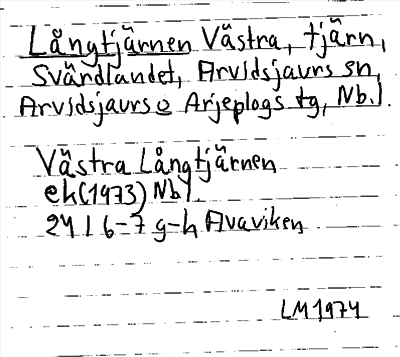 Långtjärnen Västra, tjärn,
Svärdlandet, Arvidsjaurs sn,
Arvidsjaurs o Arjeplogs tg, Nb.l.
Västra Långtjärnen
ek(1973) Nbl.
24 I 6-7 g-h Avaviken
LM 1974